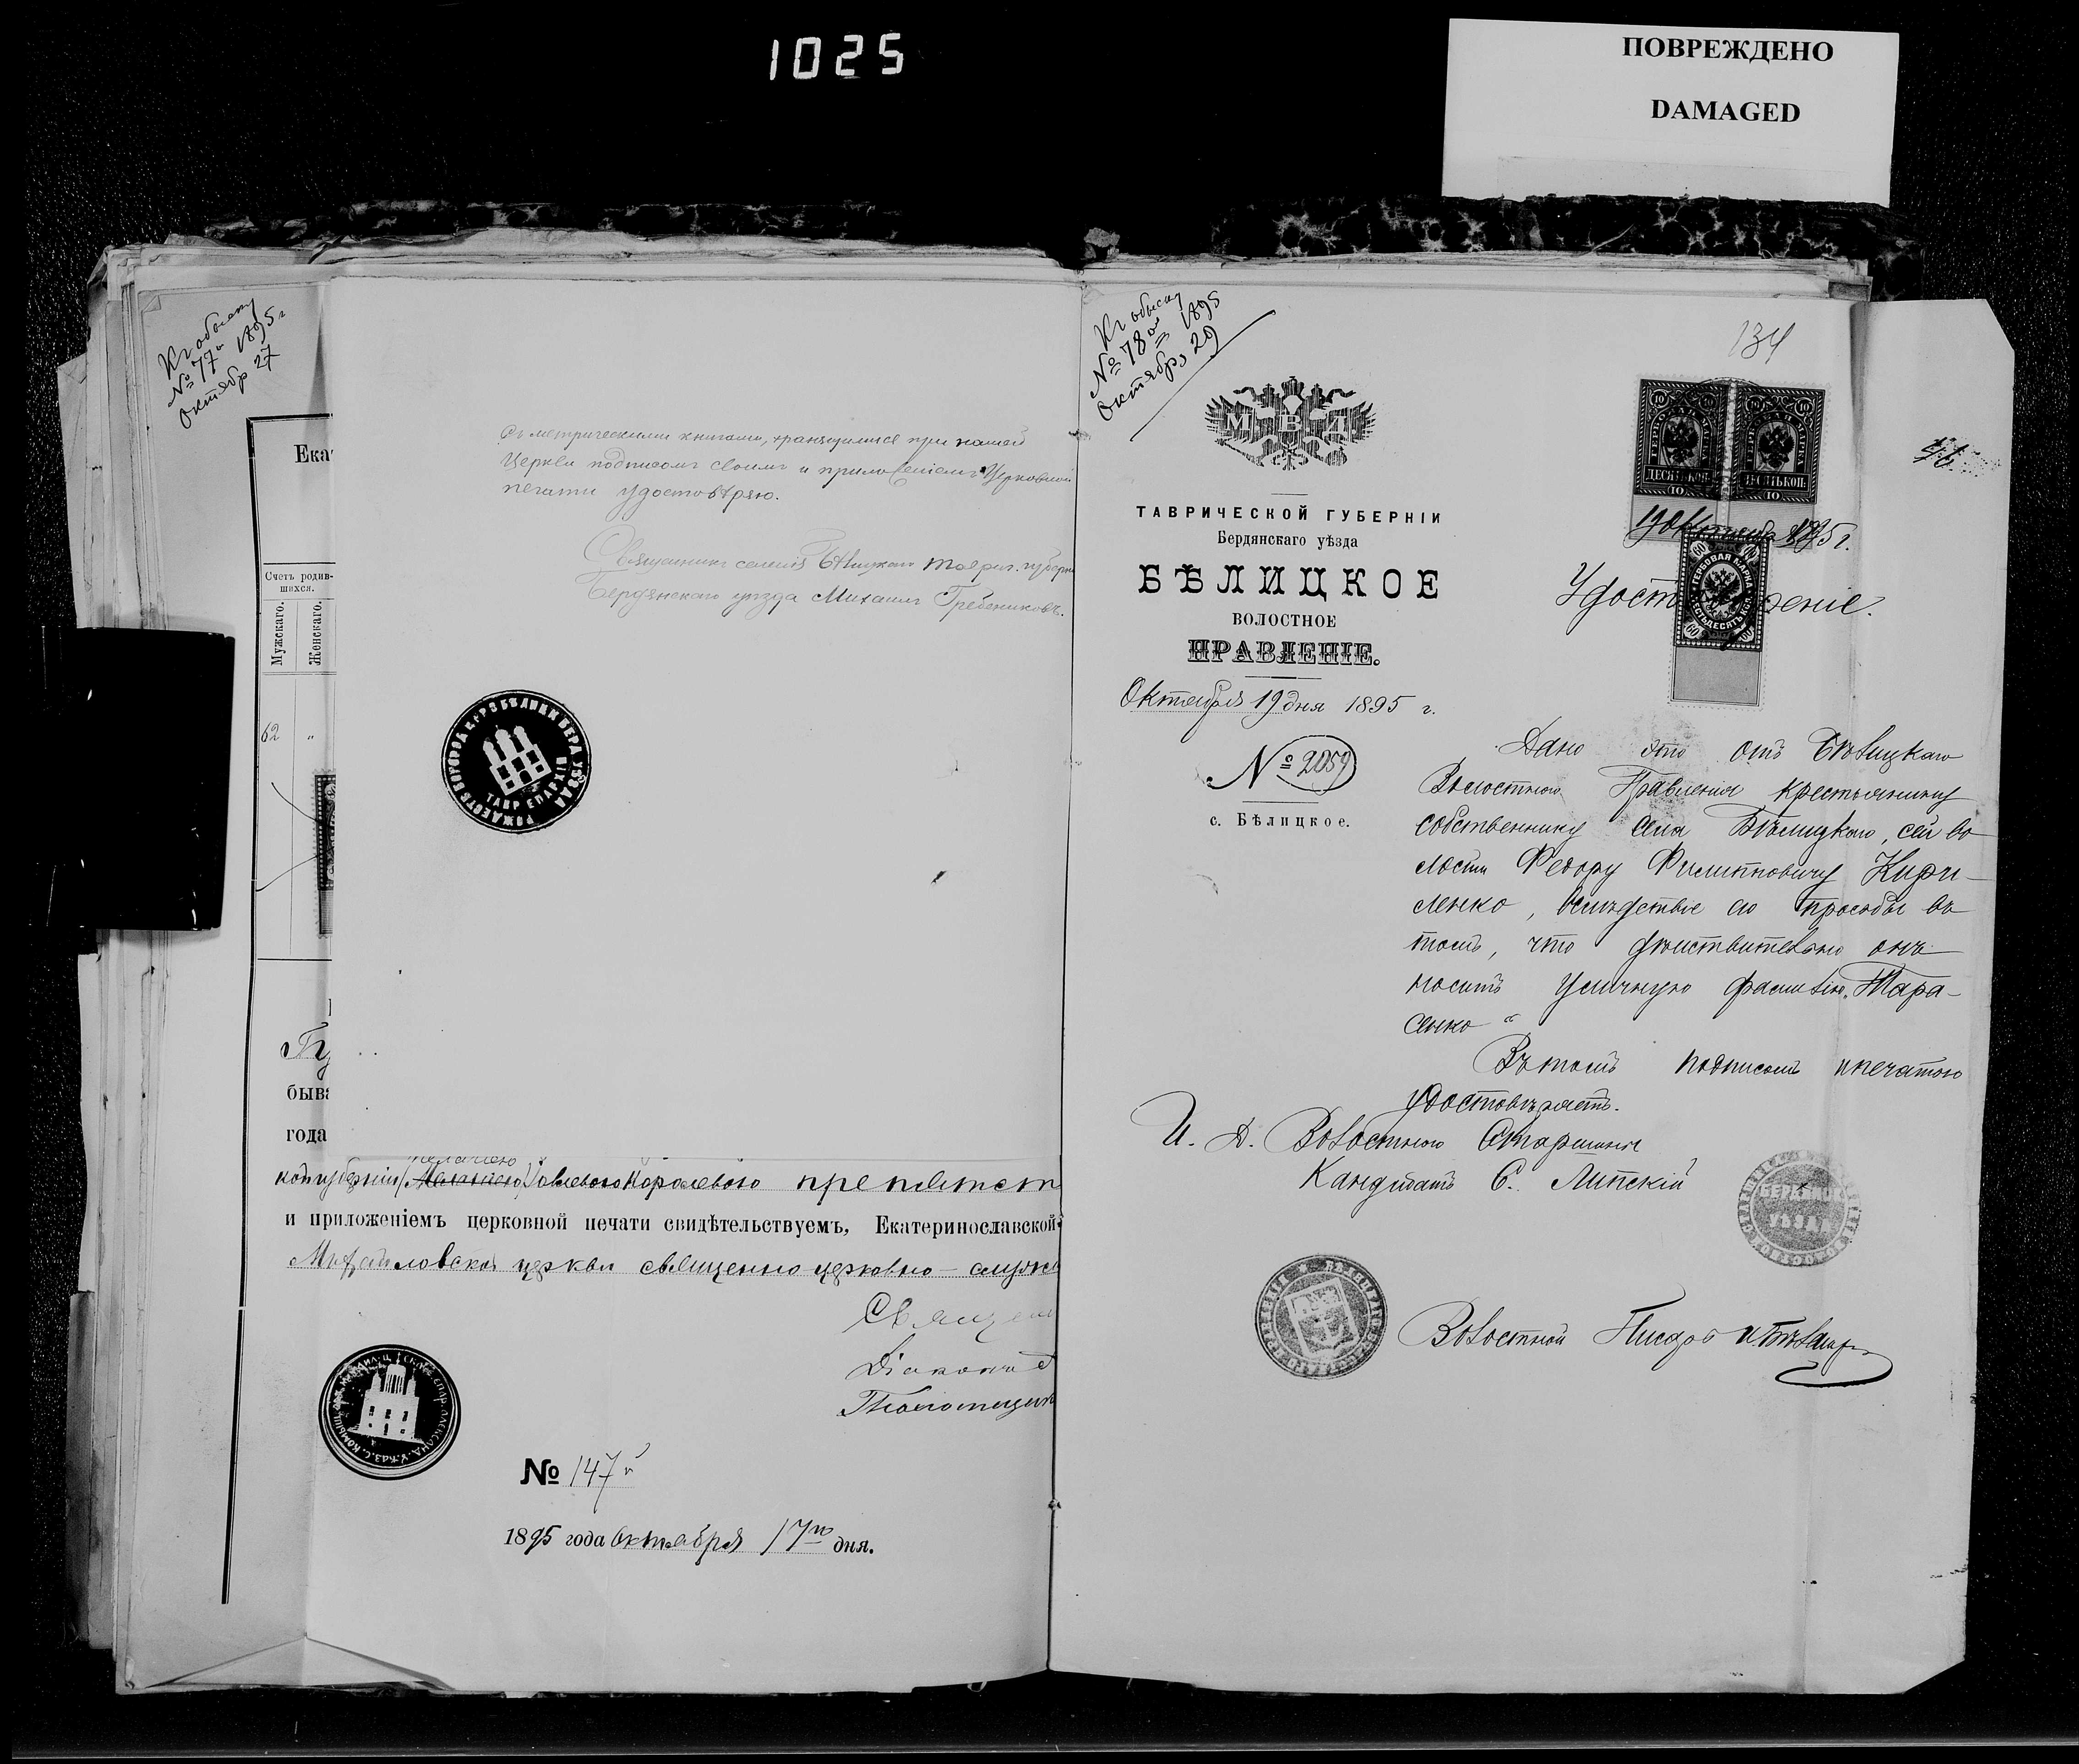 1025
ПОВРЕЖДЕНО
DAMAGED
Къ обыску
№ 77й 1895 г
Октябр 27
Ека
Счетъ родив-
шихся.
Мужскаго.
Женскаго.
62 "
быва
года
Съ метрическими книгами, хранящимися при нашей
Церкви подписомъ своимъ и приложеніемъ Церковной
печати удостовѣряю.
Священникъ селенія Бѣлицкаго Таврич. губерн
Бердянскаго уѣзда Михаилъ Гребениковъ.
РОЖДЕСТВ БОГОРОД БЕРД УѢЗДА
ТАВР ЕПАРХІИ
препятст
и приложеніемъ церковной печати свидѣтельствуемъ, Екатеринославской
Михайловской церкви священно церковно-служ
Священ
Діаконъ
№ 147й
1895 года Октября 17го дня.
Къ обыску
№ 78й 1895
Октябрь 29
134
М В Д
ТАВРИЧЕСКОЙ ГУБЕРНІИ
Бердянскаго уѣзда
БѢЛИЦКОЕ
ВОЛОСТНОЕ
ПРАВЛЕНІЕ.
Октября 19 дня 1895 г.
№ 2059
с. Бѣлицкое.
ГЕРБОВАЯ МАРКА
ДЕСЯТЬ КОП.
10
ГЕРБОВАЯ МАРКА
ДЕСЯТЬ КОП.
10
19 Октября 1895 г.
ГЕРБОВАЯ МАРКА
60
Удост реніе.
Дано это отъ Бѣлицкаго
Волостного Правленія крестьянину
собственнику села Бѣлицкаго, сей во
лости Федору Филипповичу Кири-
ленко, вслѣдствіе его просьбы въ
томъ, что дѣйствительно онъ
носитъ уличную фамилію „Тара-
сенко“
Въ томъ подписомъ и печатью
удостовѣряетъ.
И. Д. Волостного Старшины
Кандидатъ С. Липскій
БЕРДЯНСК
УѢЗДА
Волостной Писарь